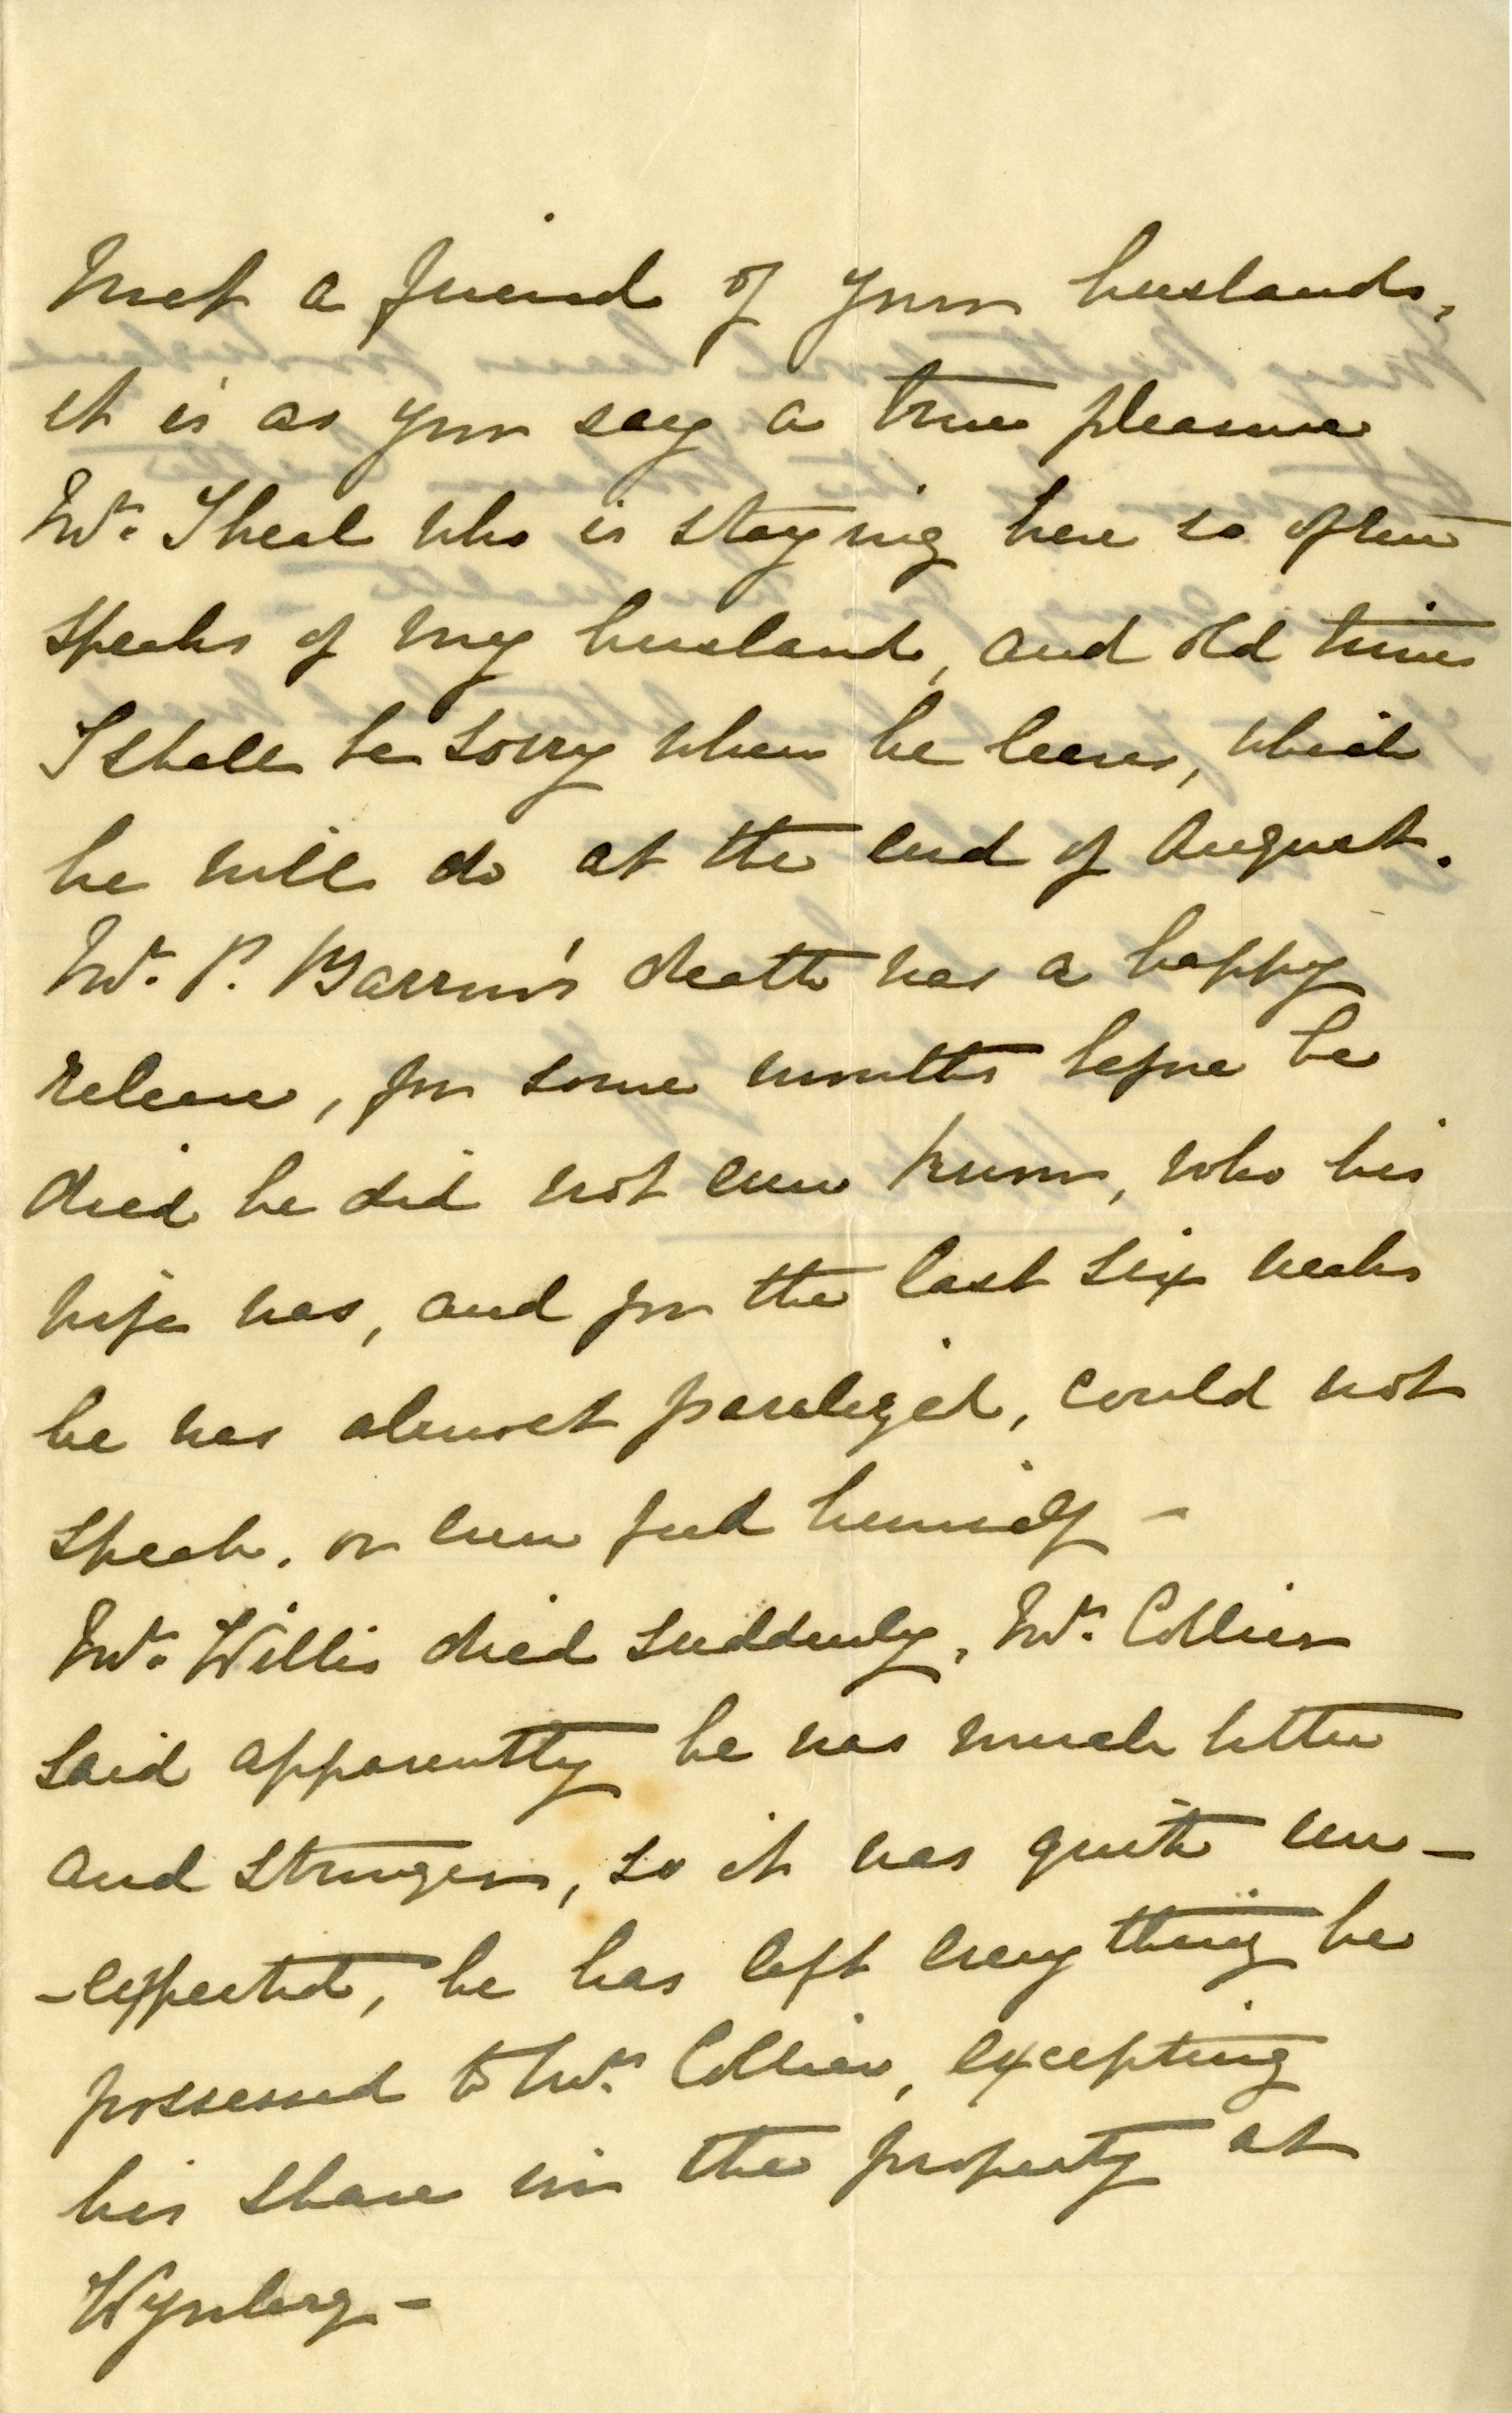 met a friend of your husbands,
it is as you say a true pleasure
Mr. Theal who is staying here so often
speaks of my husband, and old times
I shall be sorry when he leaves, which
he will do at the end of August.
Mr. P. Barrow's death was a happy
release, for some months before he
died he did not even know, who his
wife was, and for the last six weeks
he was almost paralized, could not
speak, or even feed himself –
Mr. Willis died suddenly, Mr. Collier
said apparently he was much better
and stronger, so it was quite un–
–expected, he has left every thing he
possessed to Mr. Collier, excepting
his share in the property at
Wynberg –